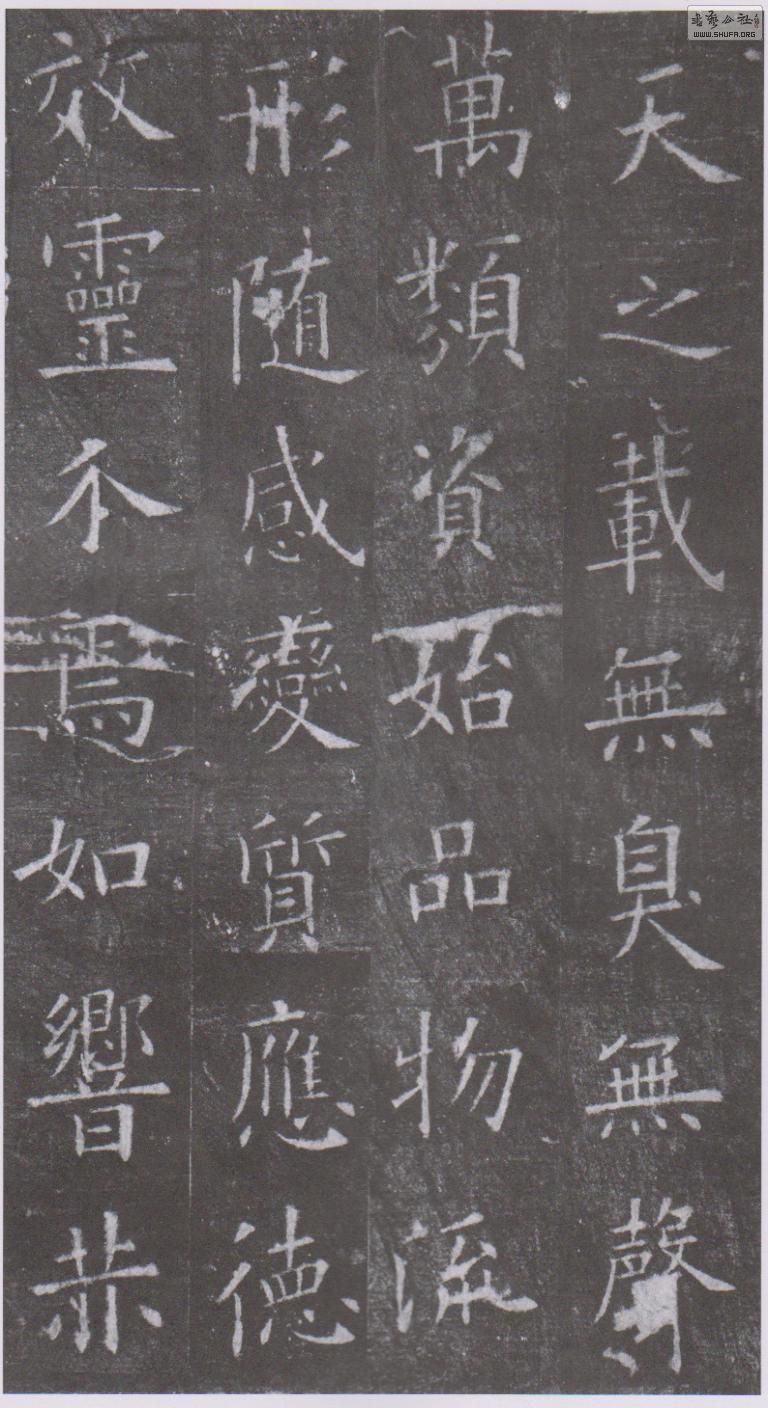 天之載無臭無聲
萬類資始品物流
形随感變質應德
效靈不焉如響赫
書藝公社
WWW.SHUFA.ORG